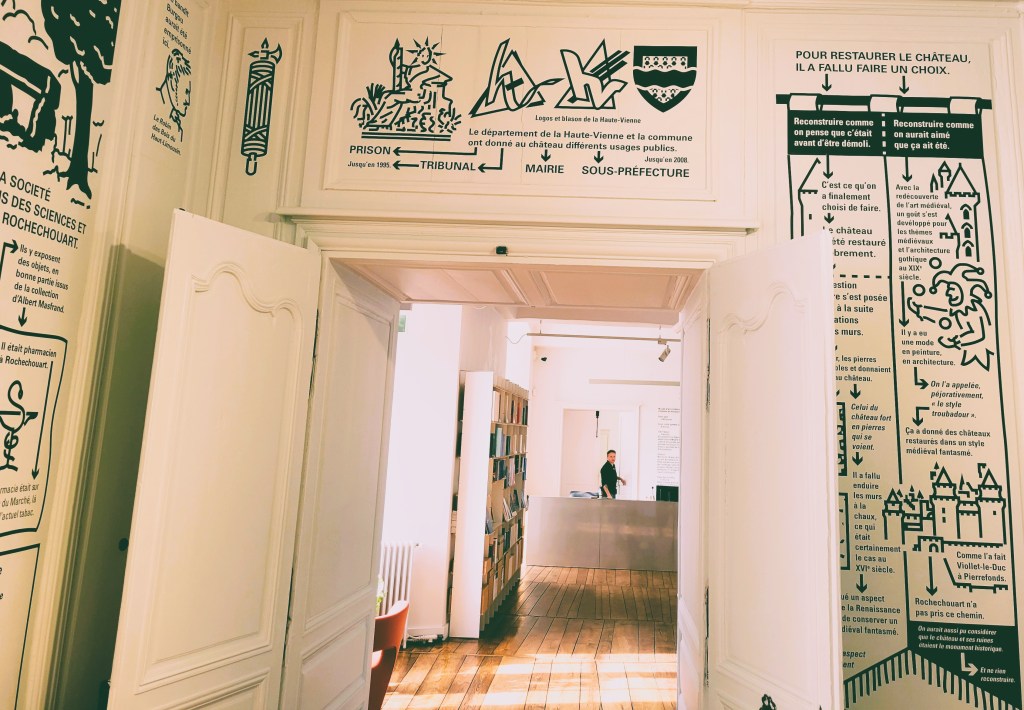 bandit
Burgou
aurait été
emprisonné
ici.
Le Robin
des Bois du
Haut-Limousin.
A SOCIÉTÉ
S DES SCIENCES ET
ROCHECHOUART.
Ils y exposent
des objets, en
bonne partie issus
de la collection
d'Albert Masfrand.
Il était pharmacien
à Rochechouart.
armacie était sur
du Marché, là
l'actuel tabac.
Logos et blason de la Haute-Vienne
Le département de la Haute-Vienne et la commune
ont donné au château différents usages publics.
PRISON
Jusqu'en 1995.
TRIBUNAL
MAIRIE
Jusqu'en 2008.
SOUS-PRÉFECTURE
POUR RESTAURER LE CHÂTEAU,
IL A FALLU FAIRE UN CHOIX.
Reconstruire comme
on pense que c'était
avant d'être démoli.
C'est ce qu'on
a finalement
choisi de faire.
Le château
été restauré
brement.
estion
e s'est posée
à la suite
ations
s murs.
r, les pierres
bles et donnaient
au château.
Celui du
château fort
en pierres
qui se
voient.
Il a fallu
enduire
les murs
à la
chaux,
ce qui
était
certainement
le cas au
XVIe siècle.
ué un aspect
e la Renaissance
de conserver un
édiéval fantasmé.
espect
ment
Reconstruire comme
on aurait aimé
que ça ait été.
Avec la
redécouverte
de l'art médiéval,
un goût s'est
développé pour
les thèmes
médiévaux
et l'architecture
gothique
au XIXe
siècle.
Il y a eu
une mode
en peinture,
en architecture.
On l'a appelée,
péjorativement,
« le style
troubadour ».
Ça a donné des châteaux
restaurés dans un style
médiéval fantasmé.
Comme l'a fait
Viollet-le-Duc
à Pierrefonds.
Rochechouart n'a
pas pris ce chemin.
On aurait aussi pu considérer
que le château et ses ruines
étaient le monument historique.
Et ne rien
reconstruire.